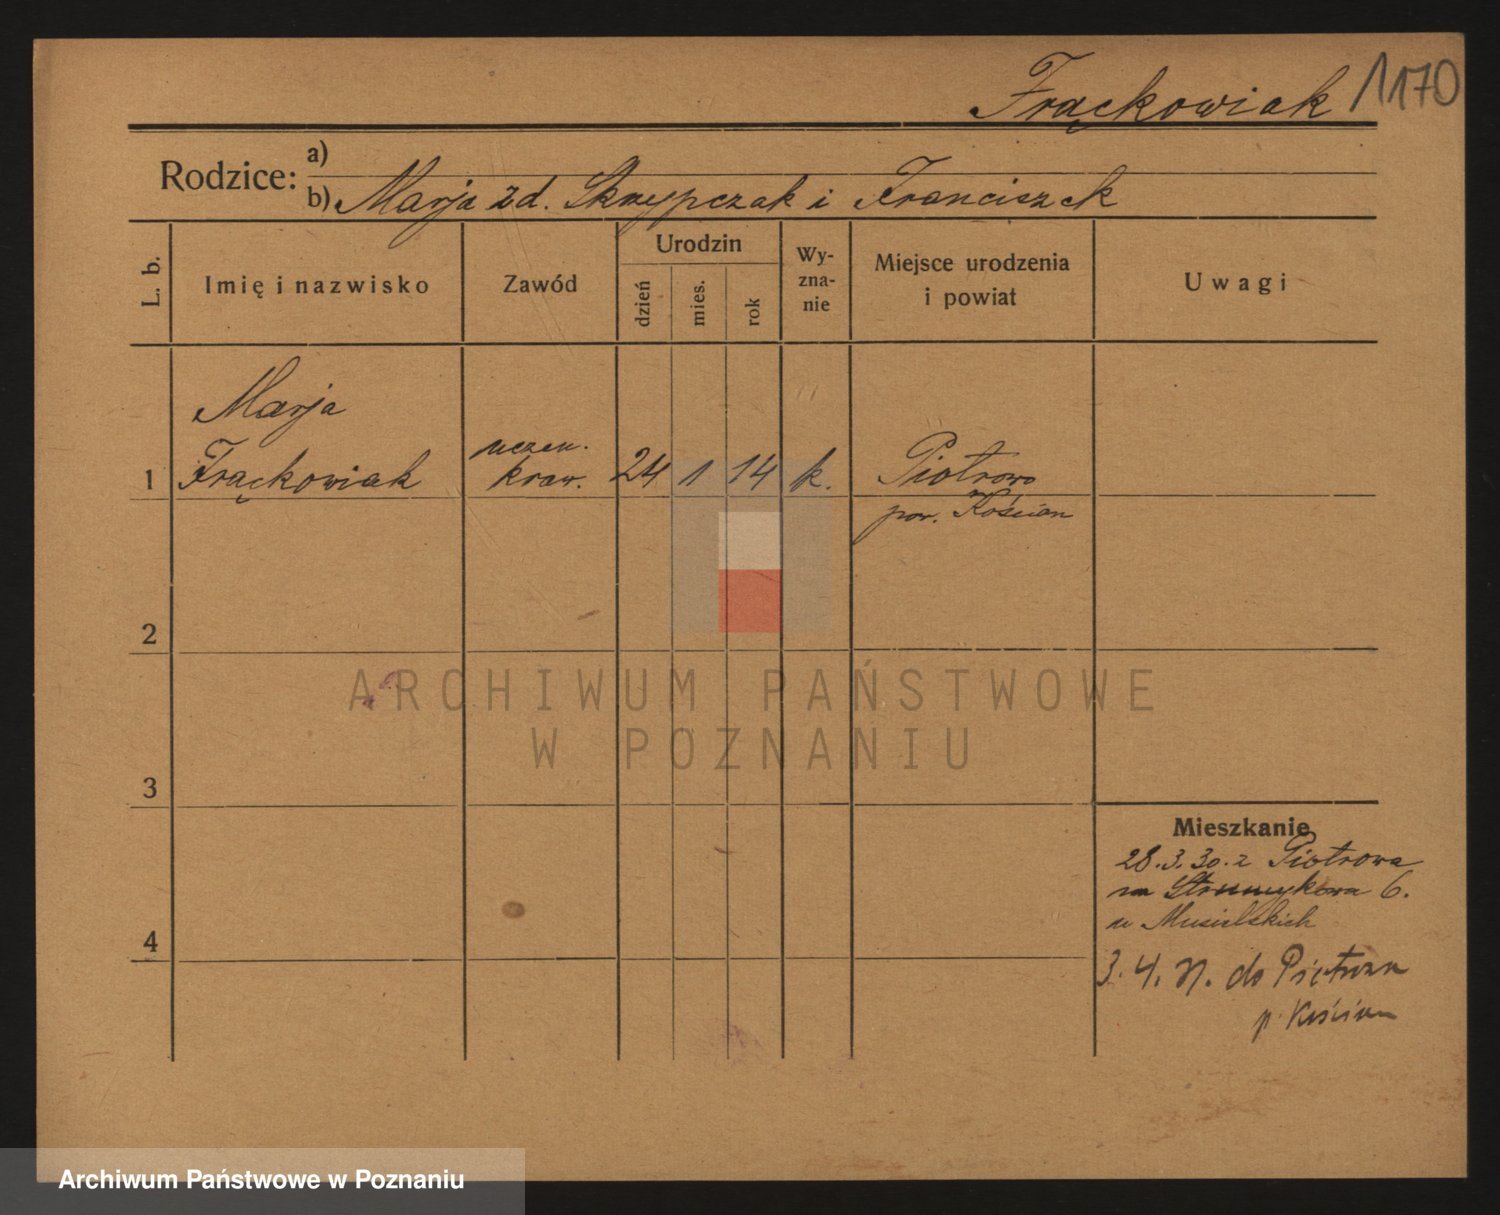 Frąckowiak 1170
Rodzice: a)
b) Marja zd. Skrzypczak i Franciszek
L. b.
Imię i nazwisko
Zawód
Urodzin
dzień
mies.
rok
Wy-
zna-
nie
Miejsce urodzenia
i powiat
Uwagi
Marja
uczen.
1 Frąckowiak kraw. 24 1 14 k. Piotrowo
pow. Kościan
2
ARCHIWUM PAŃSTWOWE
W POZNANIU
3
Mieszkanie
28.3.30. z Piotrowa
na Strumykowa 6.
u Musielskich
4
3. 4. do Piotrowa
p. Kościan
Archiwum Państwowe w Poznaniu